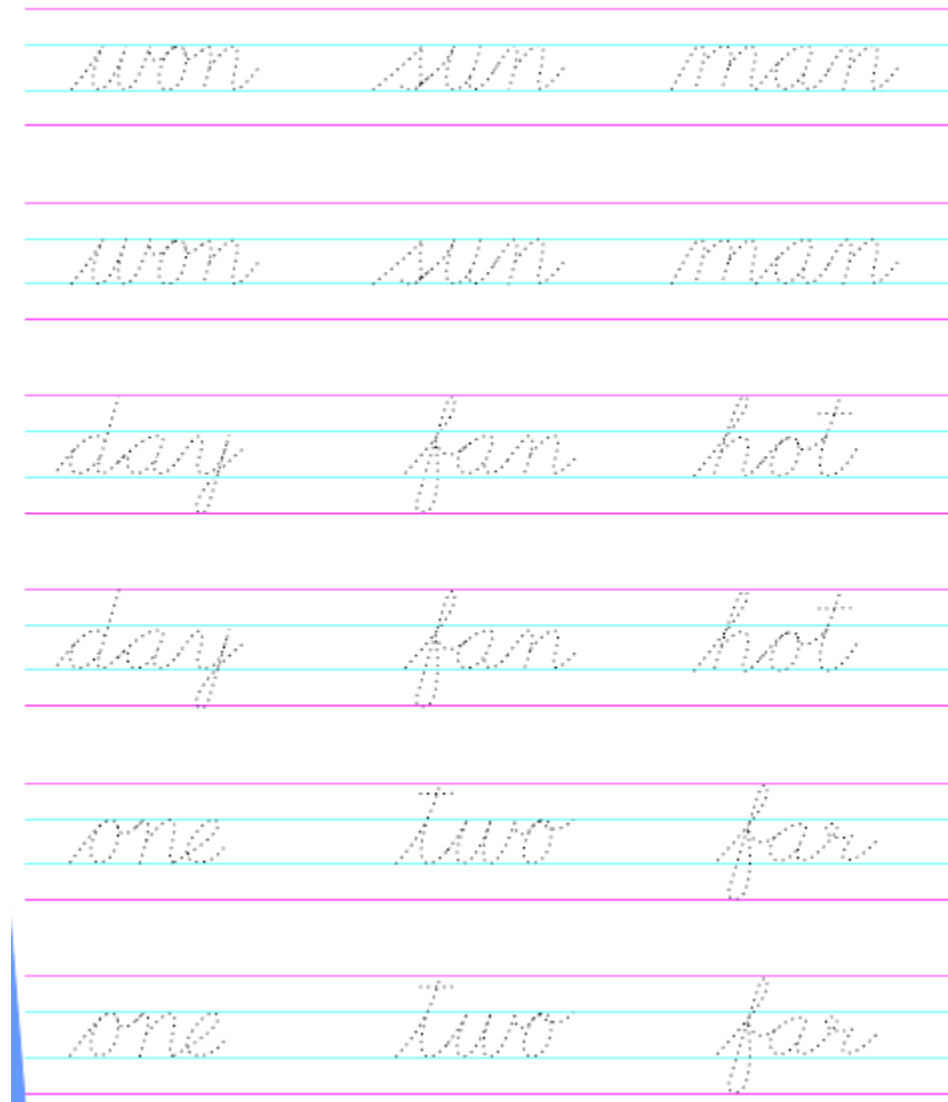 won sun man
won sun man
day fan hot
day fan hot
one two far
one two far